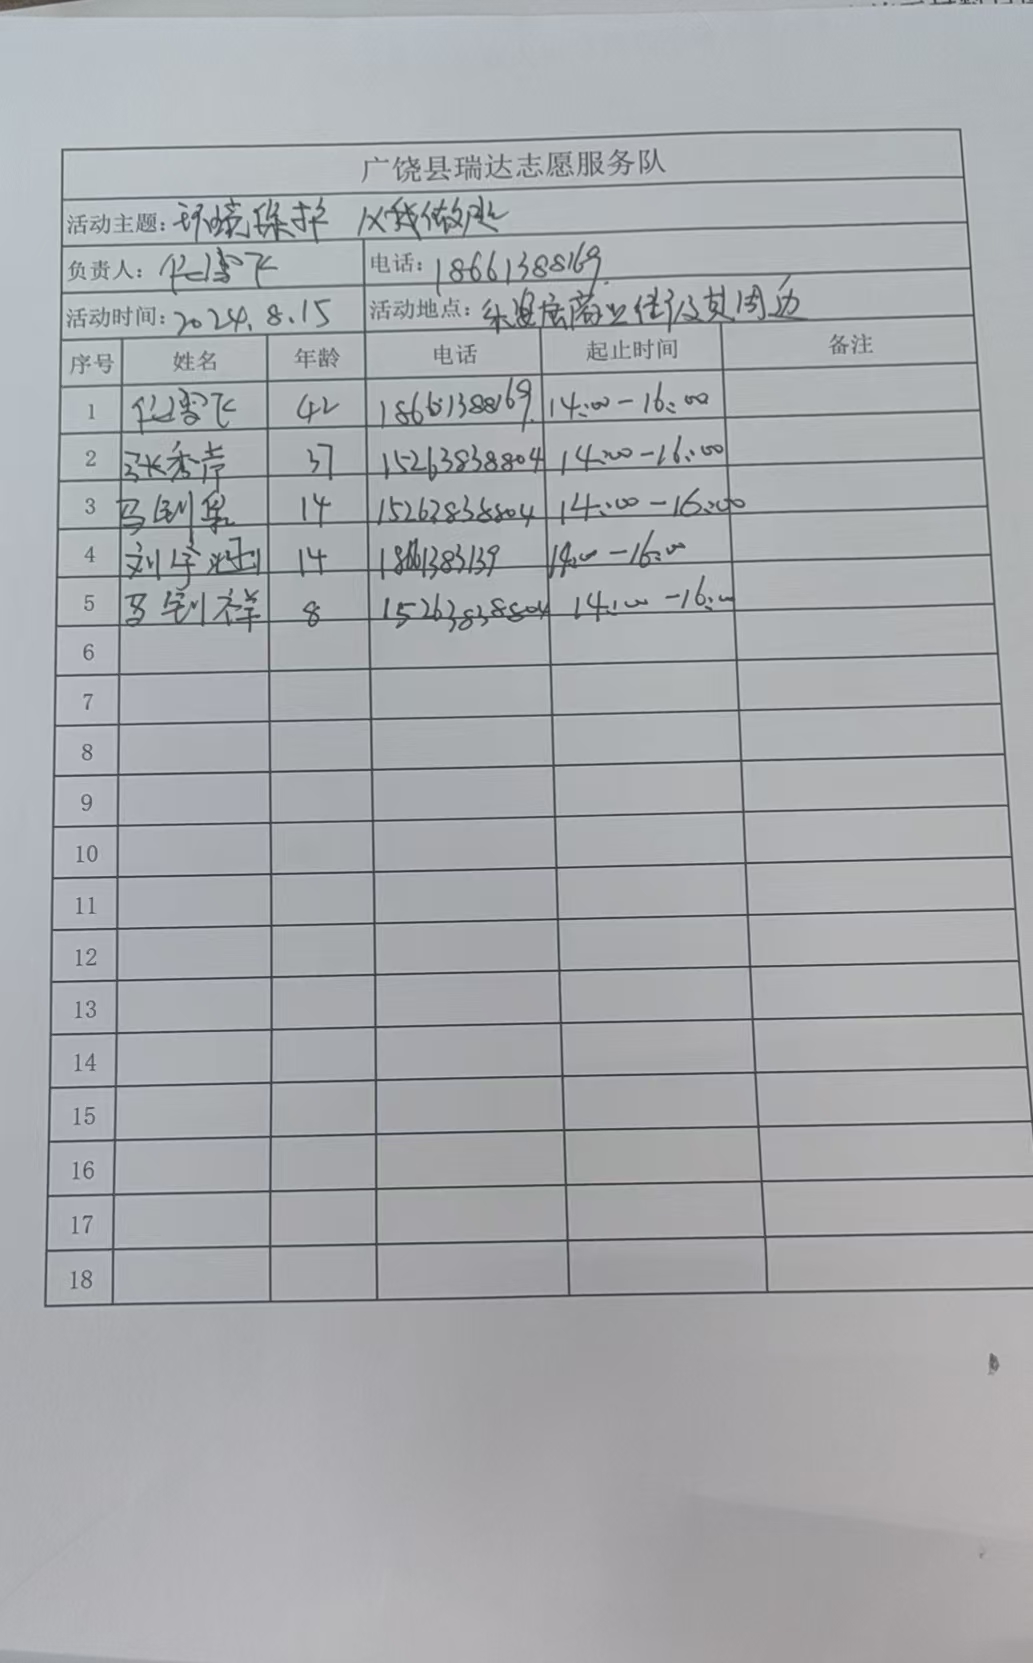 广饶县瑞达志愿服务队
活动主题：环境保护 从我做起
负责人： 电话：18661388169
活动时间：2024.8.15 活动地点：商业街及其周边
序号 姓名 年龄 电话 起止时间 备注
1 42 18661388169 14:00-16:00
2 张秀芹 37 15263838804 14:00-16:00
3 马钊 14 15263838804 14:00-16:00
4 刘宇 14 14:00-16:00
5 马钊祥 8 15263838804 14:00-16:00
6
7
8
9
10
11
12
13
14
15
16
17
18